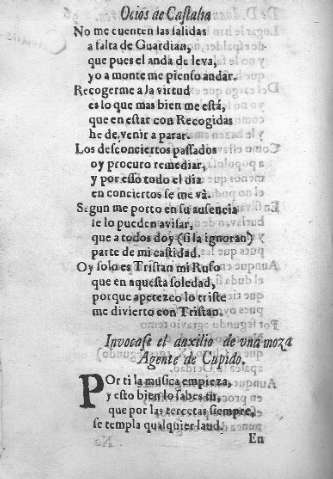 Ocios de Castalia
No me cuenten las salidas
a falta de Guardian,
que pues el anda de leva,
yo a monte me pienso andar.
Recogerme a la virtud
es lo que mas bien me está,
que en estar con Recogidas
he de, venir a parar.
Los desconciertos passados
oy procuro remediar,
y por esso todo el dia
en conciertos se me và.
Segun me porto en su ausencia
se lo pueden avisar,
que a todos doy (si la ignoran)
parte de mi castidad.
Oy solo es Tristan mi Rufo
que en aquesta soledad,
porque apetezco lo triste
me divierto con Tristan.
Invocase el auxilio de una moza
Agente de Cupido.
POr ti la musica empieza,
y esto bien lo sabes tu,
que por las terceras siempre,
se templa qualquier laud.
En